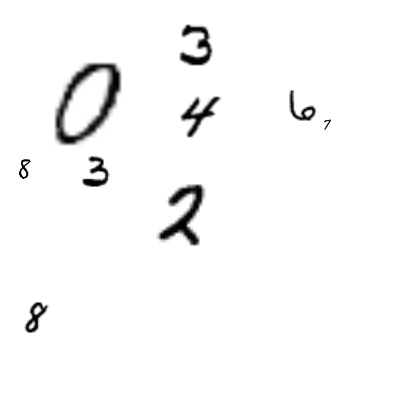 3
0 4 6 7
8 3
2
8